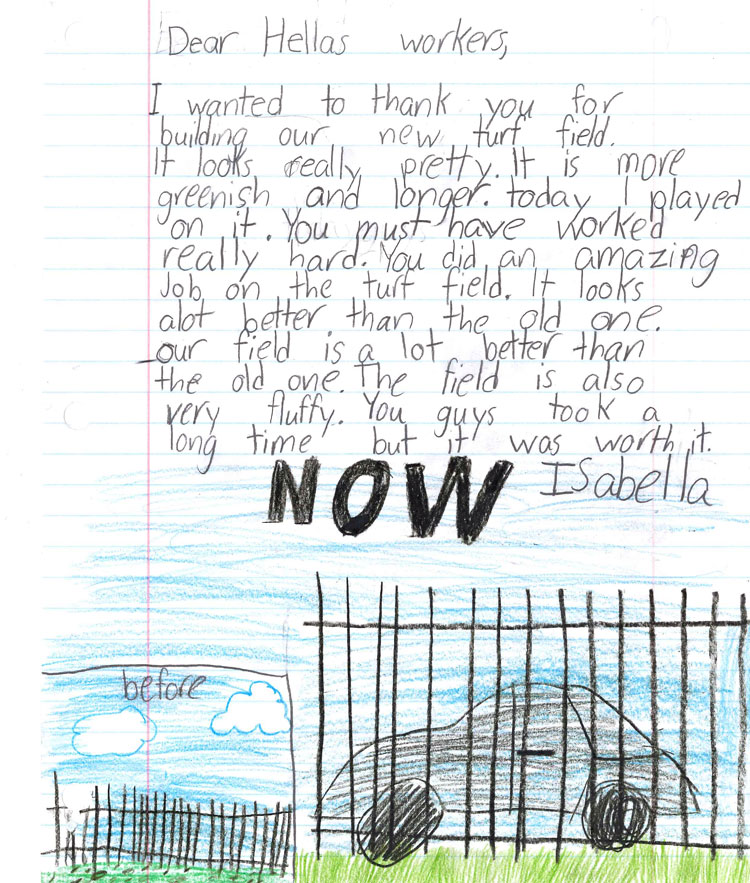 Dear Hellas workers,
I wanted to thank you for
building our new turf field.
It looks really pretty. It is more
greenish and longer. today I played
on it. You must have worked
really hard. You did an amazing
Job on the turf field. It looks
alot better than the old one.
our field is a lot better than
the old one. The field is also
very fluffy. You guys took a
long time but it was worth it.
Isabella
NOW
before